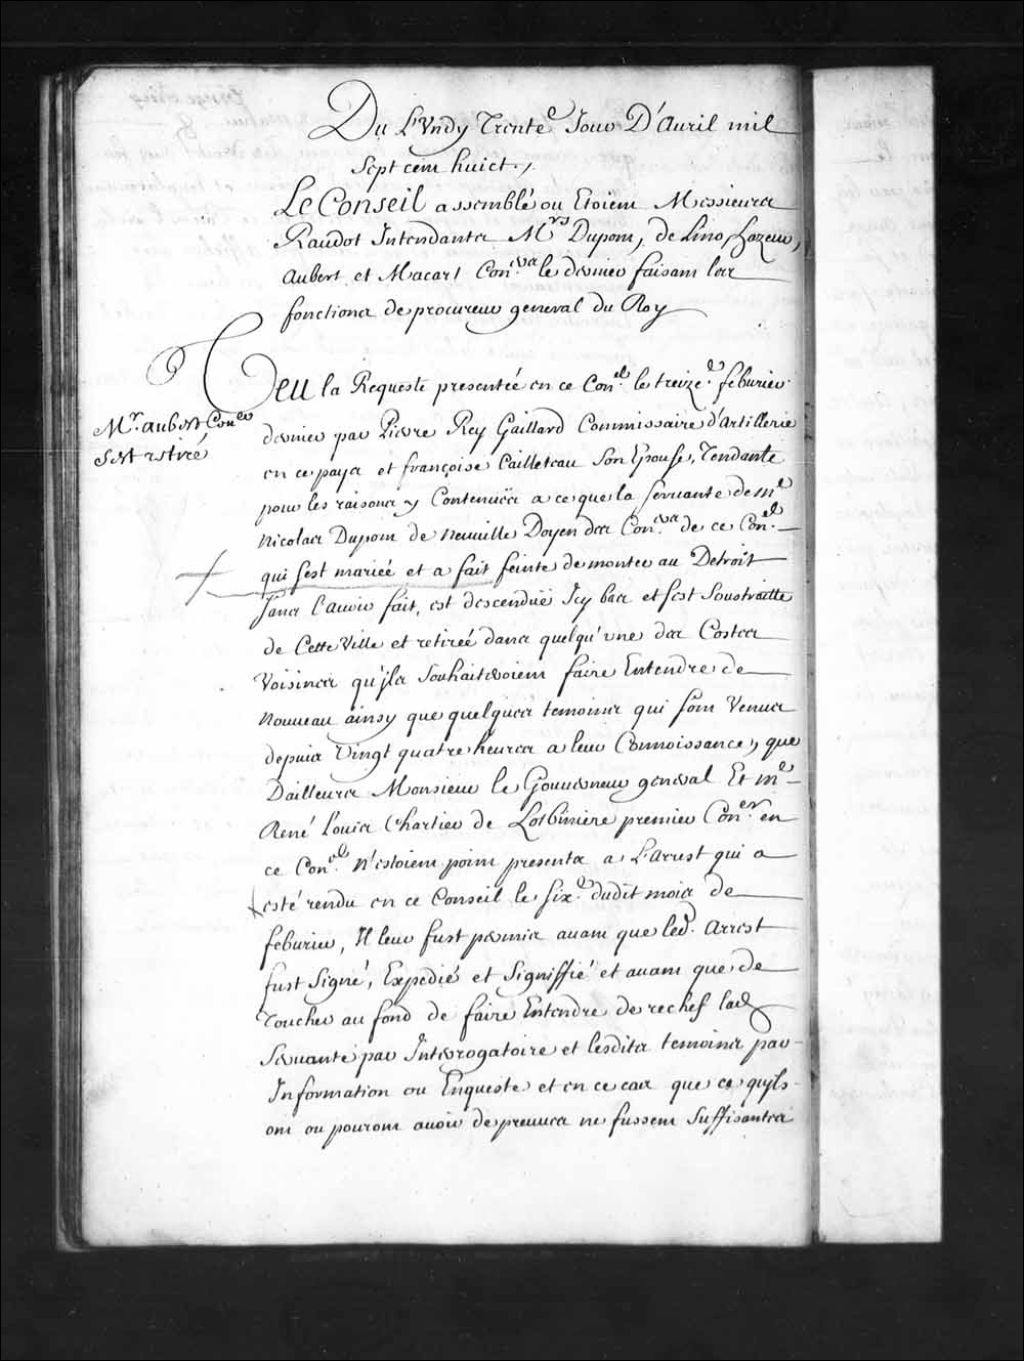 Du Lundy Trente.e Jour D'Auril mil
Sept cent huict./.
Le Conseil assemblé ou Etoient Messieurs
Raudot Intendants M.rs Dupont, de Lino, hazeur,
Aubert et Macart Con.ers le dernier faisant les
fonctions de procureur general du Roy
Veu la Requeste presentée en ce Con.el le treize.e feburier
Mr. aubert Con.er
s'est retiré
dernier par Pierre Rey Gaillard Commissaire d'Artillerie
en ce pays et françoise Cailleteau Son Epouse, Tendante
pour les raisons y Contenuës a ce que la servante de M.e
Nicolas Dupont de neuuille Doyen des Con.ers de ce Con.el
qui s'est mariée et a fait feinte de monter au Detroit
sans l'auoir fait, est descenduë Icy bas et s'est Soustraitte
de Cette Ville et retirée dans quelqu'vne des Costes
Voisines qu'jls Souhaiteroient faire Entendre de
nouueau ainsy que quelques temoins qui sont Venus
depuis Vingt quatre heures a leur Connoissance, que
D'ailleurs Monsieur le Gouuerneur general Et M.e
René Louis Chartier de Lotbiniere premier Con.er en
ce Con.el N'estoient point presents a L'Arrest qui a
esté rendu en ce Conseil le six.e dudit mois de
feburier, Il leur fust permis auant que led. Arrest
fust Signé, Expedié et Signiffié et auant que de
Toucher au fond de faire Entendre de rechef lad.
Seruante par Interrogatoire et lesdits temoins par
Information ou Enqueste et en ce cas que ce qu'jls
ont ou pouront auoir de preuues ne fussent Suffisantes